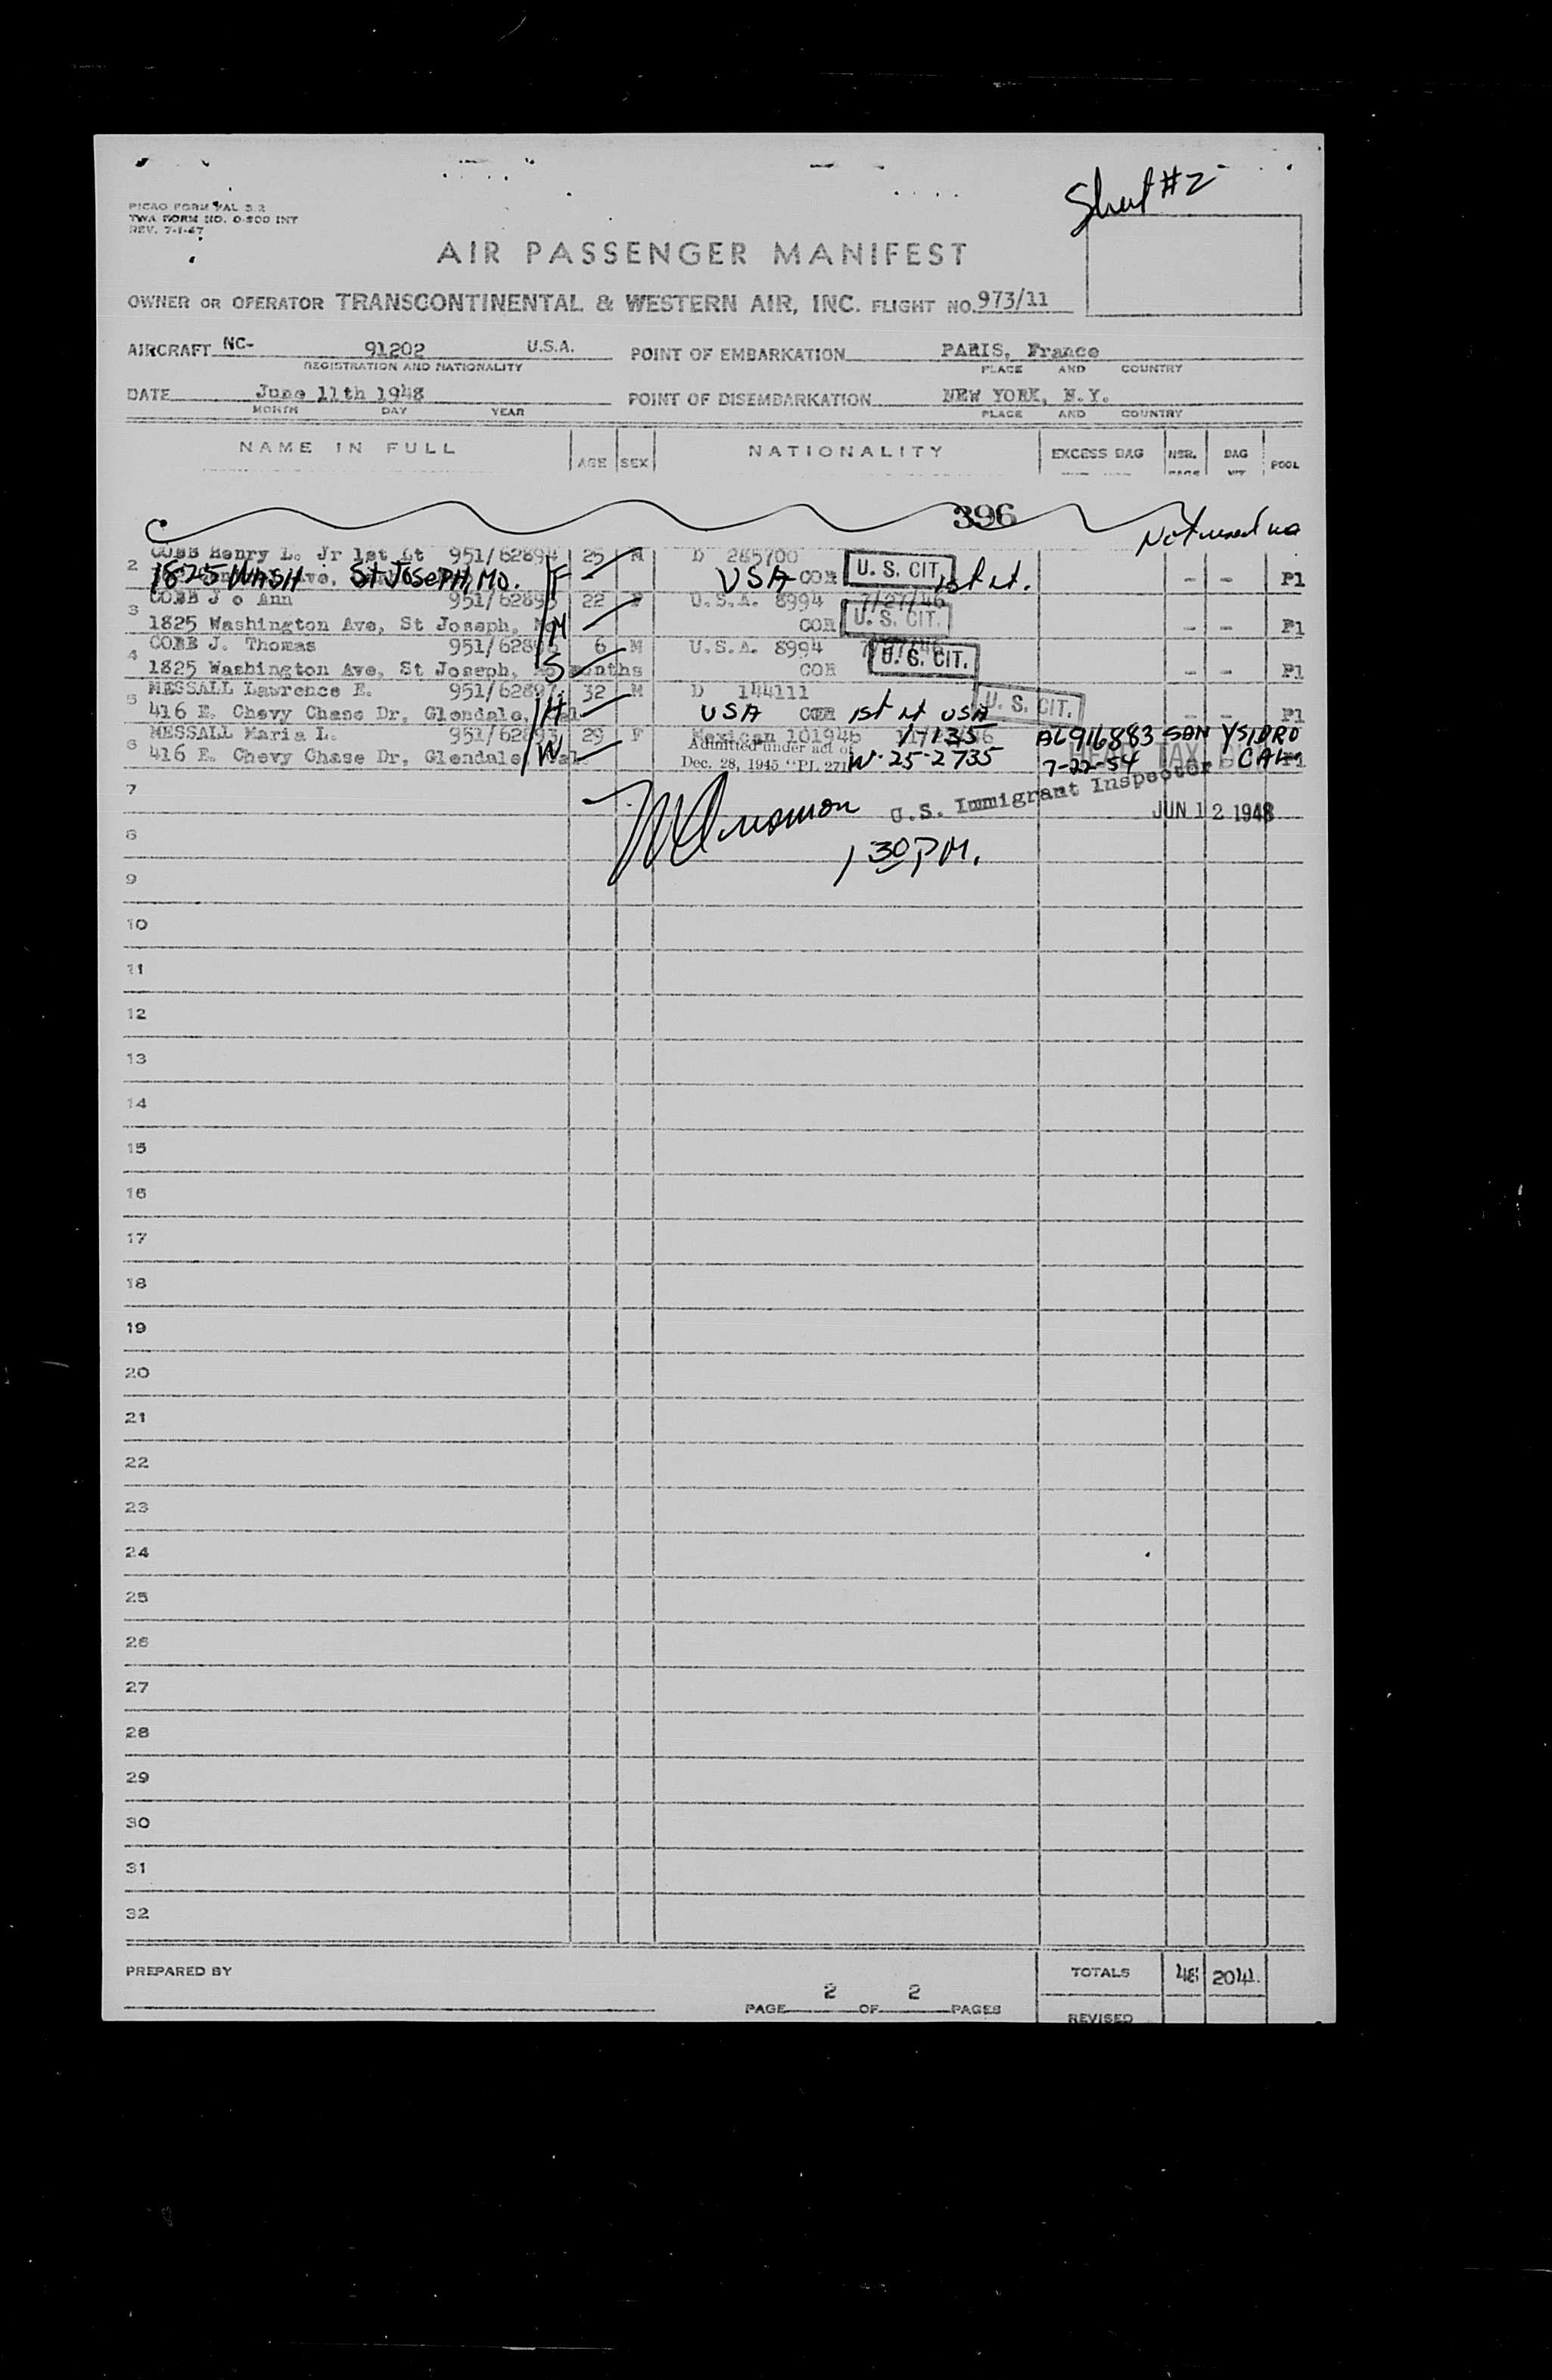 Sheet #2
PICAO FORM FAL 3.2
TWA FORM NO. O-800 INT
REV. 7-1-47
AIR PASSENGER MANIFEST
OWNER OR OPERATOR TRANSCONTINENTAL & WESTERN AIR, INC. FLIGHT NO. 973/11
AIRCRAFT NC- 91202 U.S.A. POINT OF EMBARKATION PARIS, France
REGISTRATION AND NATIONALITY PLACE AND COUNTRY
DATE June 11th 1948 POINT OF DISEMBARKATION NEW YORK, N.Y.
MONTH DAY YEAR PLACE AND COUNTRY
NAME IN FULL AGE SEX NATIONALITY EXCESS BAG NBR. BAG POOL
396
Not used
2 COBB Henry L. Jr 1st Lt 951/62894 25 M D 285700
1825 WASH Ave, St JOSEPH, MO. F USA COR U. S. CIT. 1st Lt. - - P1
3 COBB J o Ann 951/62895 22 F U.S.A. 8994 7/27/46
1825 Washington Ave, St Joseph, M COR U. S. CIT. - - P1
4 COBB J. Thomas 951/62896 6 M U.S.A. 8994 7/27/46
1825 Washington Ave, St Joseph, S months COR U. S. CIT. - - P1
5 MESSALL Lawrence E. 951/62897 32 M D 144111
416 E. Chevy Chase Dr, Glendale, Cal H USA COR 1st Lt USA U. S. CIT. - - P1
6 MESSALL Maria L. 951/62893 29 F Mexican 101946 AL916883 SAN YSIDRO
416 E. Chevy Chase Dr, Glendale, Cal W Admitted under act of Dec. 28, 1945 "PL 271 W-25-2735 7-22-54 CAL HEAD TAX P1
7 U.S. Immigrant Inspector
JUN 12 1948
8 1 30 P.M.
9
10
11
12
13
14
15
16
17
18
19
20
21
22
23
24
25
26
27
28
29
30
31
32
PREPARED BY TOTALS 48 2041
PAGE 2 OF 2 PAGES
REVISED